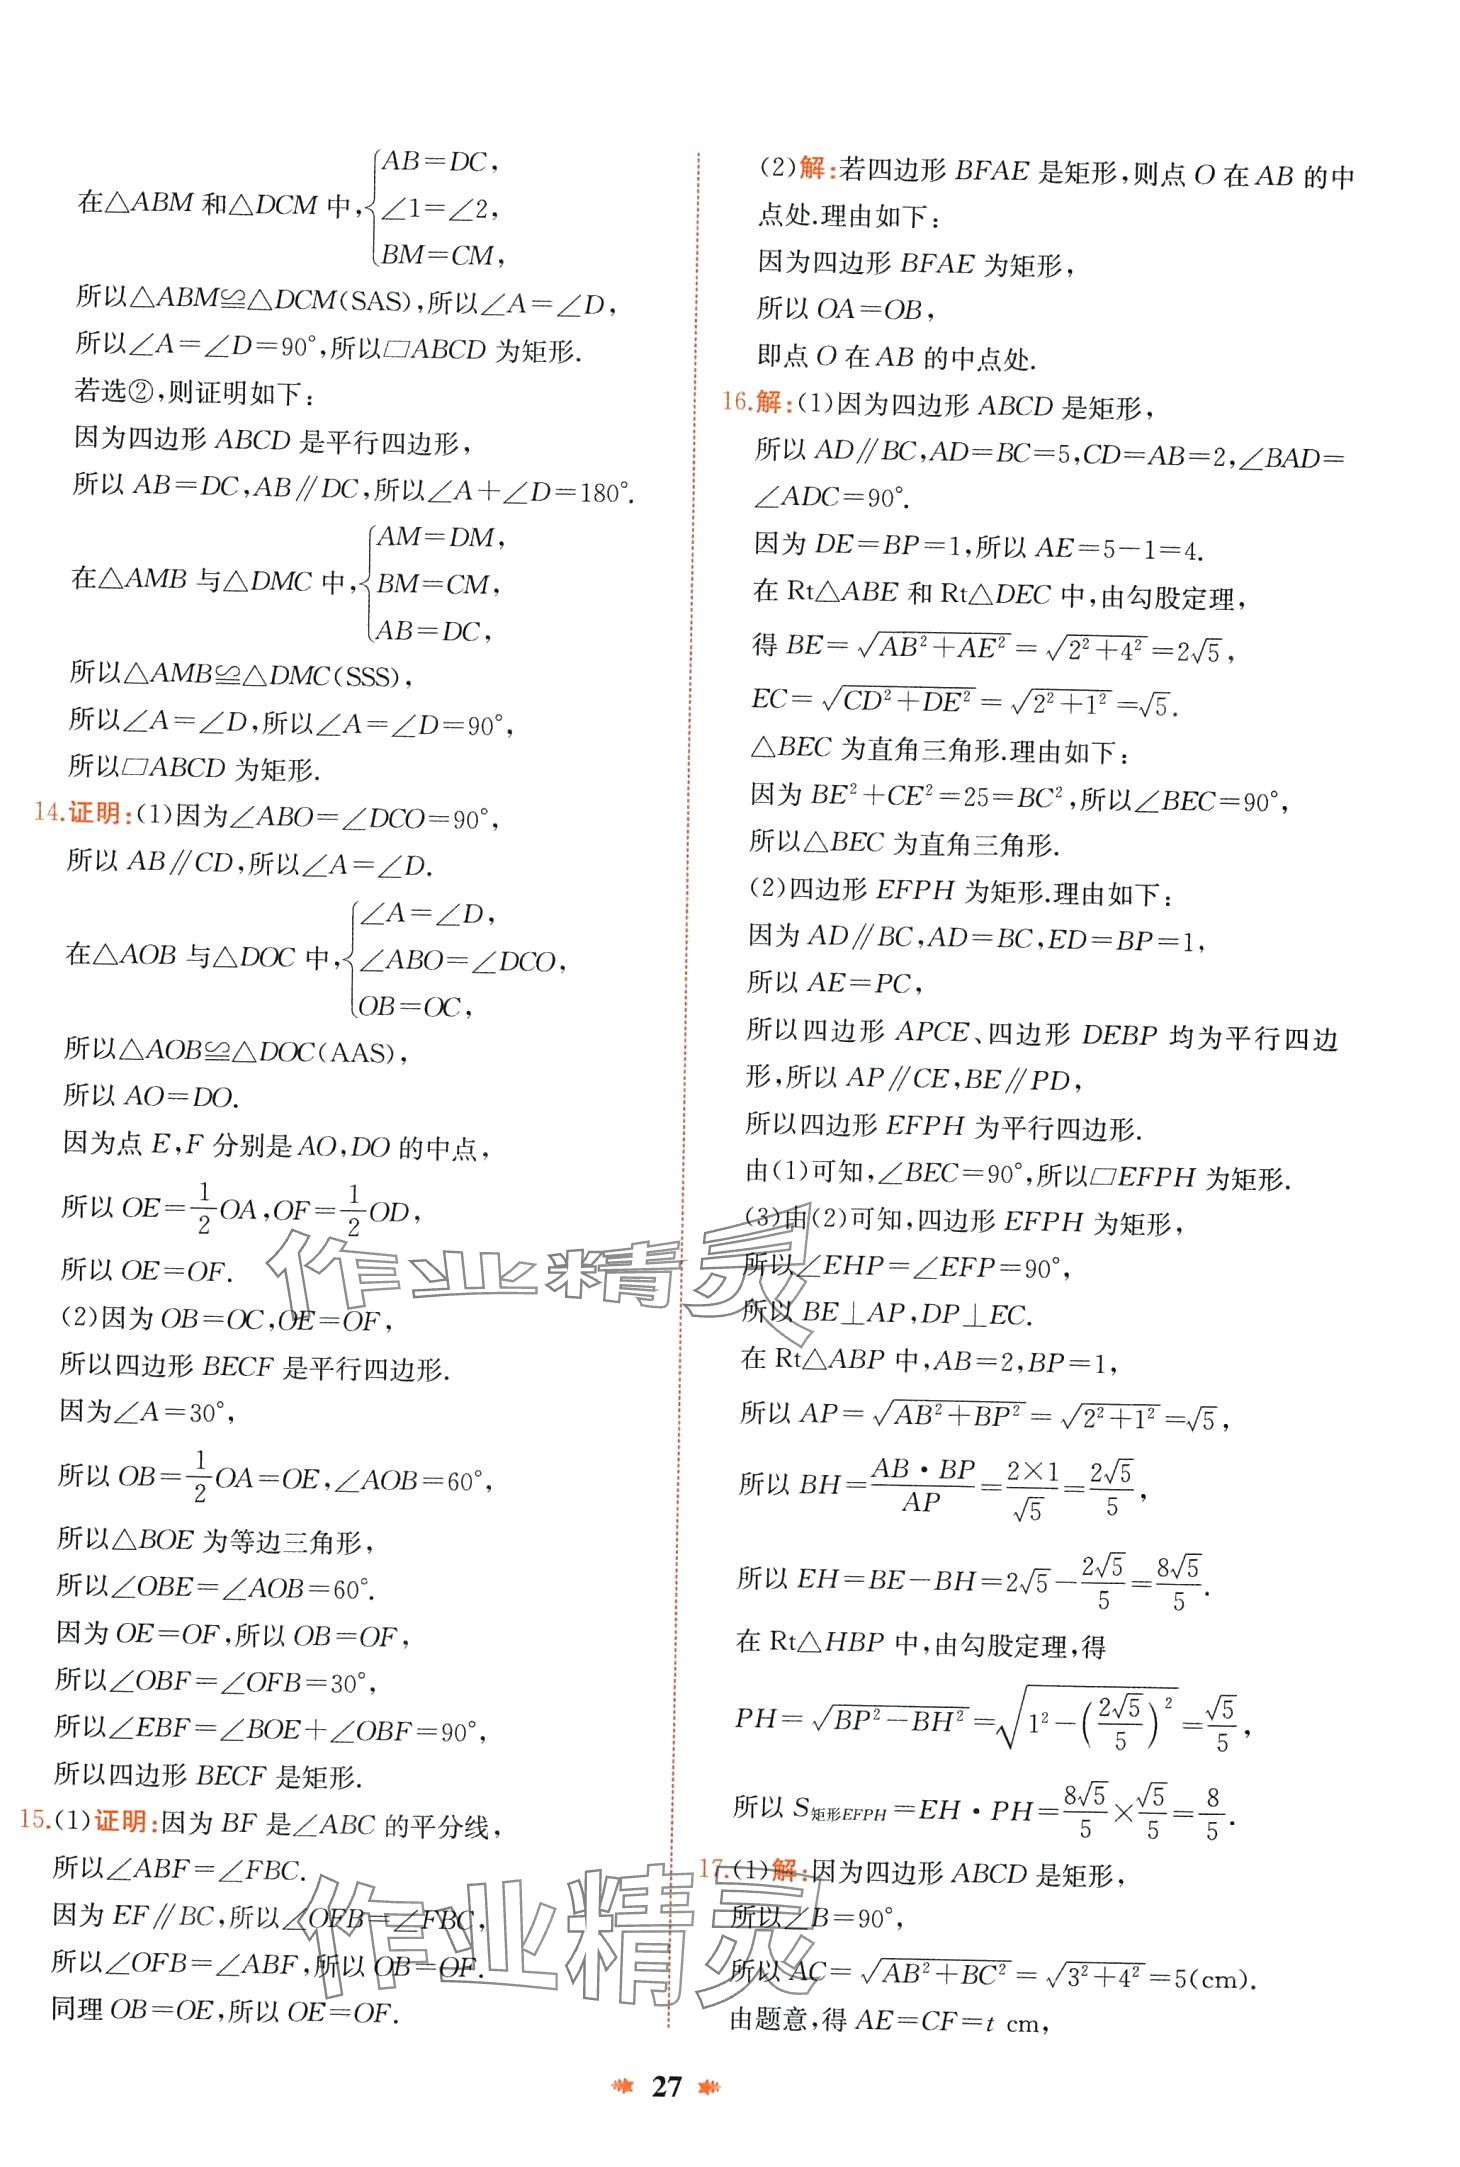 在△ABM 和△DCM 中,{AB=DC,
∠1=∠2,
BM=CM,
所以△ABM≌△DCM(SAS),所以∠A=∠D,
所以∠A=∠D=90°,所以□ABCD 为矩形.
若选②,则证明如下:
因为四边形 ABCD 是平行四边形,
所以 AB=DC,AB∥DC,所以∠A+∠D=180°.
在△AMB 与△DMC 中,{AM=DM,
BM=CM,
AB=DC,
所以△AMB≌△DMC(SSS),
所以∠A=∠D,所以∠A=∠D=90°,
所以□ABCD 为矩形.
14.证明:(1)因为∠ABO=∠DCO=90°,
所以 AB∥CD,所以∠A=∠D.
在△AOB 与△DOC 中,{∠A=∠D,
∠ABO=∠DCO,
OB=OC,
所以△AOB≌△DOC(AAS),
所以 AO=DO.
因为点 E,F 分别是 AO,DO 的中点,
所以 OE=1/2OA,OF=1/2OD,
所以 OE=OF.
(2)因为 OB=OC,OE=OF,
所以四边形 BECF 是平行四边形.
因为∠A=30°,
所以 OB=1/2OA=OE,∠AOB=60°,
所以△BOE 为等边三角形,
所以∠OBE=∠AOB=60°.
因为 OE=OF,所以 OB=OF,
所以∠OBF=∠OFB=30°,
所以∠EBF=∠BOE+∠OBF=90°,
所以四边形 BECF 是矩形.
15.(1)证明:因为 BF 是∠ABC 的平分线,
所以∠ABF=∠FBC.
因为 EF∥BC,所以∠OFB=∠FBC,
所以∠OFB=∠ABF,所以 OB=OF.
同理 OB=OE,所以 OE=OF.
(2)解:若四边形 BFAE 是矩形,则点 O 在 AB 的中
点处.理由如下:
因为四边形 BFAE 为矩形,
所以 OA=OB,
即点 O 在 AB 的中点处.
16.解:(1)因为四边形 ABCD 是矩形,
所以 AD∥BC,AD=BC=5,CD=AB=2,∠BAD=
∠ADC=90°.
因为 DE=BP=1,所以 AE=5-1=4.
在 Rt△ABE 和 Rt△DEC 中,由勾股定理,
得 BE=√(AB²+AE²)=√(2²+4²)=2√5,
EC=√(CD²+DE²)=√(2²+1²)=√5.
△BEC 为直角三角形.理由如下:
因为 BE²+CE²=25=BC²,所以∠BEC=90°,
所以△BEC 为直角三角形.
(2)四边形 EFPH 为矩形.理由如下:
因为 AD∥BC,AD=BC,ED=BP=1,
所以 AE=PC,
所以四边形 APCE、四边形 DEBP 均为平行四边
形,所以 AP∥CE,BE∥PD,
所以四边形 EFPH 为平行四边形.
由(1)可知,∠BEC=90°,所以□EFPH 为矩形.
(3)由(2)可知,四边形 EFPH 为矩形,
所以∠EHP=∠EFP=90°,
所以 BE⊥AP,DP⊥EC.
在 Rt△ABP 中,AB=2,BP=1,
所以 AP=√(AB²+BP²)=√(2²+1²)=√5,
所以 BH=AB·BP/AP=2×1/√5=2√5/5,
所以 EH=BE-BH=2√5-2√5/5=8√5/5.
在 Rt△HBP 中,由勾股定理,得
PH=√(BP²-BH²)=√(1²-(2√5/5)²)=√5/5,
所以 S矩形EFPH=EH·PH=8√5/5×√5/5=8/5.
17.(1)解:因为四边形 ABCD 是矩形,
所以∠B=90°,
所以 AC=√(AB²+BC²)=√(3²+4²)=5(cm).
由题意,得 AE=CF=t cm,
作业精灵
作业精灵
27